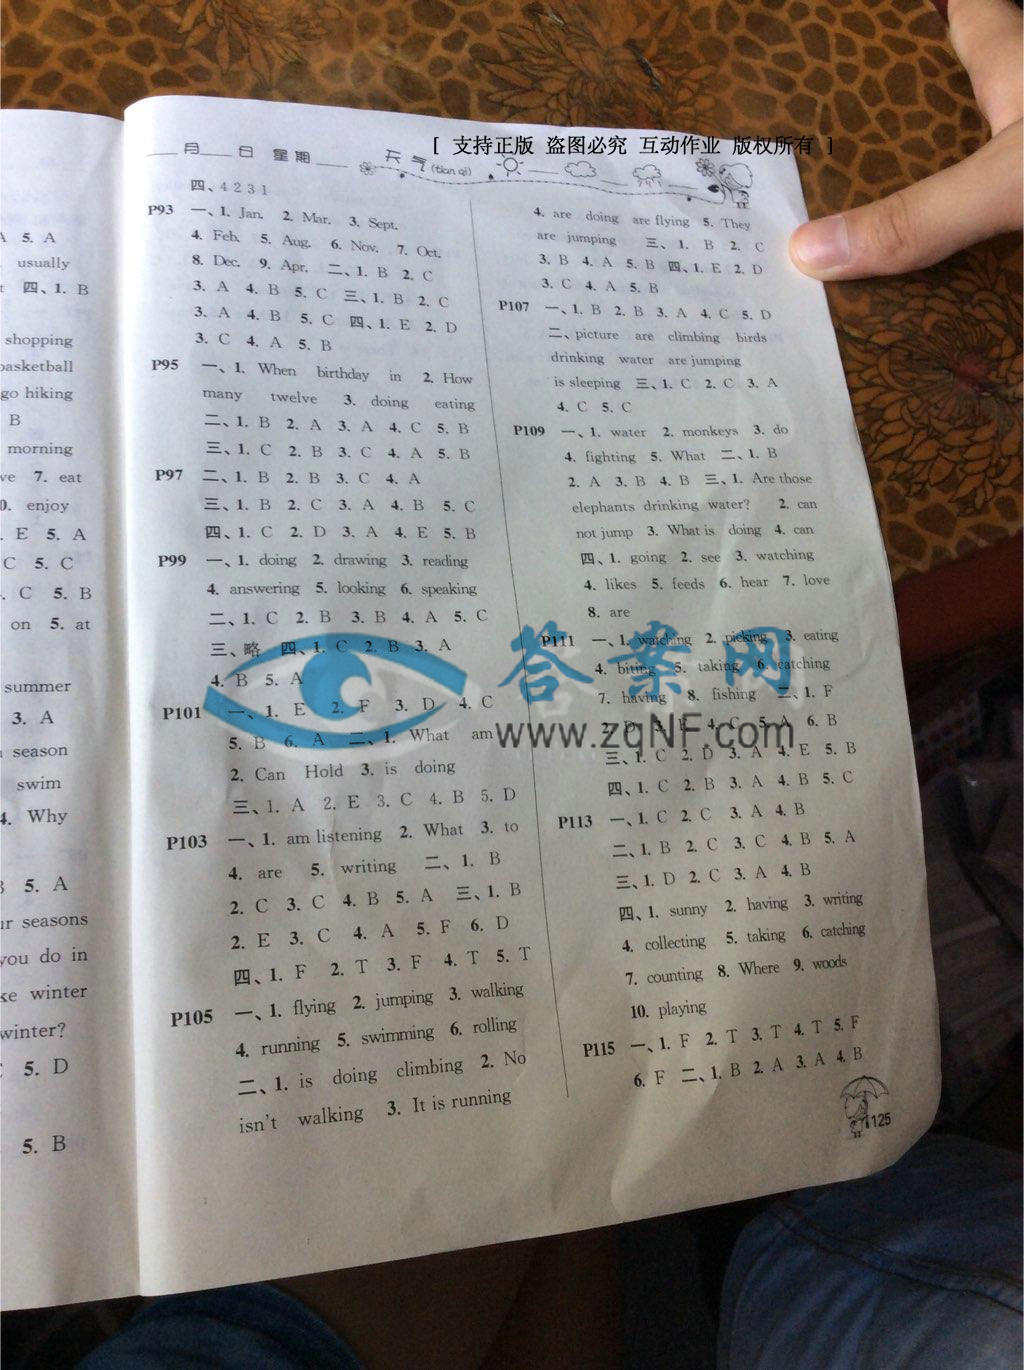 [ 支持正版 盗图必究 互动作业 版权所有 ]
月 日 星期 天气(tian qi)
A 5. A
usually
四、1. B
shopping
basketball
go hiking
B
morning
7. eat
enjoy
E 5. A
C 5. C
C 5. B
on 5. at
summer
3. A
season
swim
4. Why
5. A
seasons
you do in
winter
winter?
5. D
5. B
四、4 2 3 1
P93 一、1. Jan. 2. Mar. 3. Sept.
4. Feb. 5. Aug. 6. Nov. 7. Oct.
8. Dec. 9. Apr. 二、1. B 2. C
3. A 4. B 5. C 三、1. B 2. C
3. A 4. B 5. C 四、1. E 2. D
3. C 4. A 5. B
P95 一、1. When birthday in 2. How
many twelve 3. doing eating
二、1. B 2. A 3. A 4. C 5. B
三、1. C 2. B 3. C 4. A 5. B
P97 二、1. B 2. B 3. C 4. A
三、1. B 2. C 3. A 4. B 5. C
四、1. C 2. D 3. A 4. E 5. B
P99 一、1. doing 2. drawing 3. reading
4. answering 5. looking 6. speaking
二、1. C 2. B 3. B 4. A 5. C
三、略 四、1. C 2. B 3. A
4. B 5. A
P101 一、1. E 2. F 3. D 4. C
5. B 6. A 二、1. What am
2. Can Hold 3. is doing
三、1. A 2. E 3. C 4. B 5. D
P103 一、1. am listening 2. What 3. to
4. are 5. writing 二、1. B
2. C 3. C 4. B 5. A 三、1. B
2. E 3. C 4. A 5. F 6. D
四、1. F 2. T 3. F 4. T 5. T
P105 一、1. flying 2. jumping 3. walking
4. running 5. swimming 6. rolling
二、1. is doing climbing 2. No
isn't walking 3. It is running
4. are doing are flying 5. They
are jumping 三、1. B 2. C
3. B 4. A 5. B 四、1. E 2. D
3. C 4. A 5. B
P107 一、1. B 2. B 3. A 4. C 5. D
二、picture are climbing birds
drinking water are jumping
is sleeping 三、1. C 2. C 3. A
4. C 5. C
P109 一、1. water 2. monkeys 3. do
4. fighting 5. What 二、1. B
2. A 3. B 4. B 三、1. Are those
elephants drinking water? 2. can
not jump 3. What is doing 4. can
四、1. going 2. see 3. watching
4. likes 5. feeds 6. hear 7. love
8. are
P111 一、1. watching 2. picking 3. eating
4. biting 5. taking 6. catching
7. having 8. fishing 二、1. F
2. D 4. C 5. A 6. B
三、1. C 2. D 3. A 4. E 5. B
四、1. C 2. B 3. A 4. B 5. C
P113 一、1. C 2. C 3. A 4. B
二、1. B 2. C 3. C 4. B 5. A
三、1. D 2. C 3. A 4. B
四、1. sunny 2. having 3. writing
4. collecting 5. taking 6. catching
7. counting 8. Where 9. woods
10. playing
P115 一、1. F 2. T 3. T 4. T 5. F
6. F 二、1. B 2. A 3. A 4. B
125
答案网
www.zqNF.com